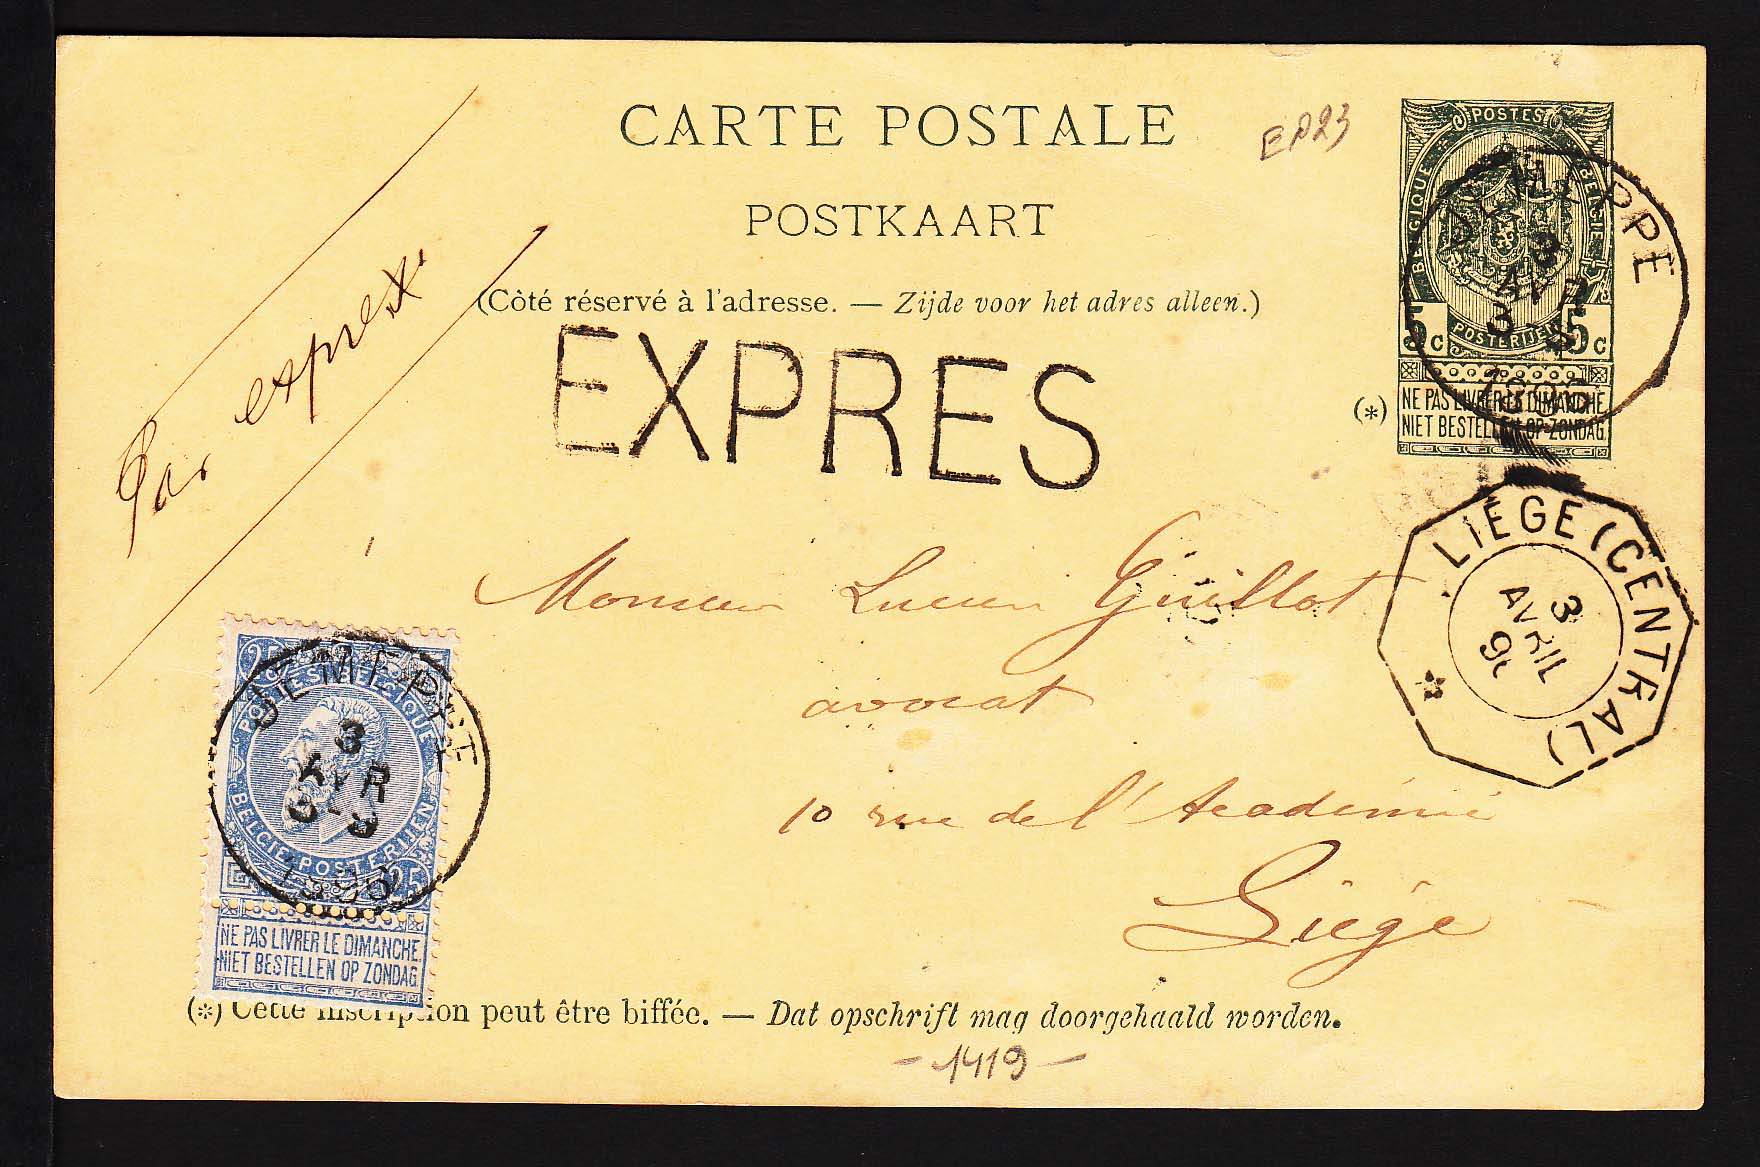 CARTE POSTALE
EP23
POSTKAART
(Côté réservé à l'adresse. — Zijde voor het adres alleen.)
EXPRES
Par exprès
POSTES
BELGIQUE
BELGIE
POSTERIJEN
5c 5c
(*) NE PAS LIVRER LE DIMANCHE
NIET BESTELLEN OP ZONDAG
JEMEPPE
3
AVR
1896
LIEGE (CENTRAL)
3
AVRIL
Monsieur Lucien Guillot
avocat
10 rue de l'Academie
Liége
25
POSTES BELGIQUE
BELGIE POSTERIJEN
25
JEMEPPE
3
AVR
3-S
1896
NE PAS LIVRER LE DIMANCHE
NIET BESTELLEN OP ZONDAG
(*) Cette inscription peut être biffée. — Dat opschrift mag doorgehaald worden.
- 1419 -